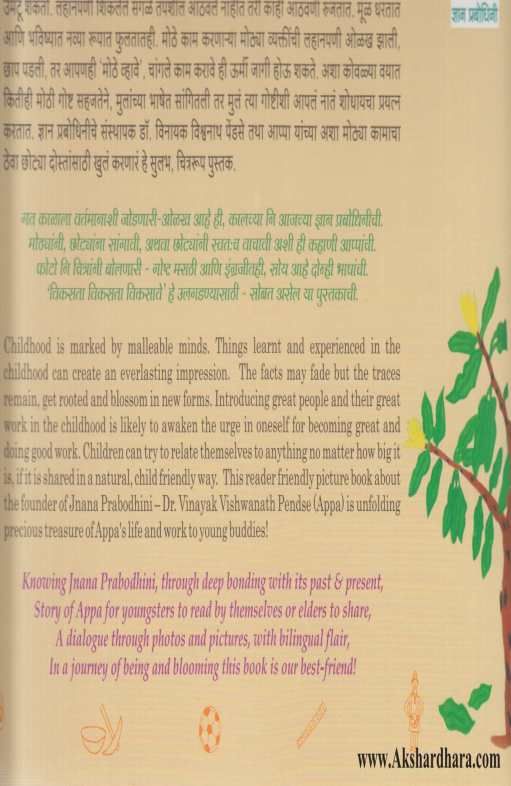 उमटू शकतो. लहानपणी शिकलेले सगळे तपशील आठवले नाहीत तरी काही आठवणी रुजतात. मूळ धरतात
ज्ञान प्रबोधिनी
आणि भविष्यात नव्या रूपात फुलतातही. मोठे काम करणाऱ्या मोठ्या व्यक्तींची लहानपणी ओळख झाली,
छाप पडली, तर आपणही 'मोठे व्हावे', चांगले काम करावे ही ऊर्मी जागी होऊ शकते. अशा कोवळ्या वयात
कितीही मोठी गोष्ट सहजतेने, मुलांच्या भाषेत सांगितली तर मुलं त्या गोष्टीशी आपलं नातं शोधायचा प्रयत्न
करतात. ज्ञान प्रबोधिनीचे संस्थापक डॉ. विनायक विश्वनाथ पेंडसे तथा आप्पा यांच्या अशा मोठ्या कामाचा
ठेवा छोट्या दोस्तांसाठी खुलं करणारं हे सुलभ, चित्ररूप पुस्तक.
गत काळाला वर्तमानाशी जोडणारी-ओळख आहे ही, कालच्या नि आजच्या ज्ञान प्रबोधिनीची.
मोठ्यांनी, छोट्यांना सांगावी, अथवा छोट्यांनी स्वतःच वाचावी अशी ही कहाणी आप्पांची.
फोटो नि चित्रांनी बोलणारी - गोष्ट मराठी आणि इंग्रजीतही, सोय आहे दोन्ही भाषांची.
'विकसता विकसता विकसावे' हे उलगडण्यासाठी - सोबत असेल या पुस्तकाची.
Childhood is marked by malleable minds. Things learnt and experienced in the
childhood can create an everlasting impression. The facts may fade but the traces
remain, get rooted and blossom in new forms. Introducing great people and their great
work in the childhood is likely to awaken the urge in oneself for becoming great and
doing good work. Children can try to relate themselves to anything no matter how big it
is, if it is shared in a natural, child friendly way. This reader friendly picture book about
the founder of Jnana Prabodhini – Dr. Vinayak Vishwanath Pendse (Appa) is unfolding
precious treasure of Appa's life and work to young buddies!
Knowing Jnana Prabodhini, through deep bonding with its past & present,
Story of Appa for youngsters to read by themselves or elders to share,
A dialogue through photos and pictures, with bilingual flair,
In a journey of being and blooming this book is our best-friend!
www.Akshardhara.com